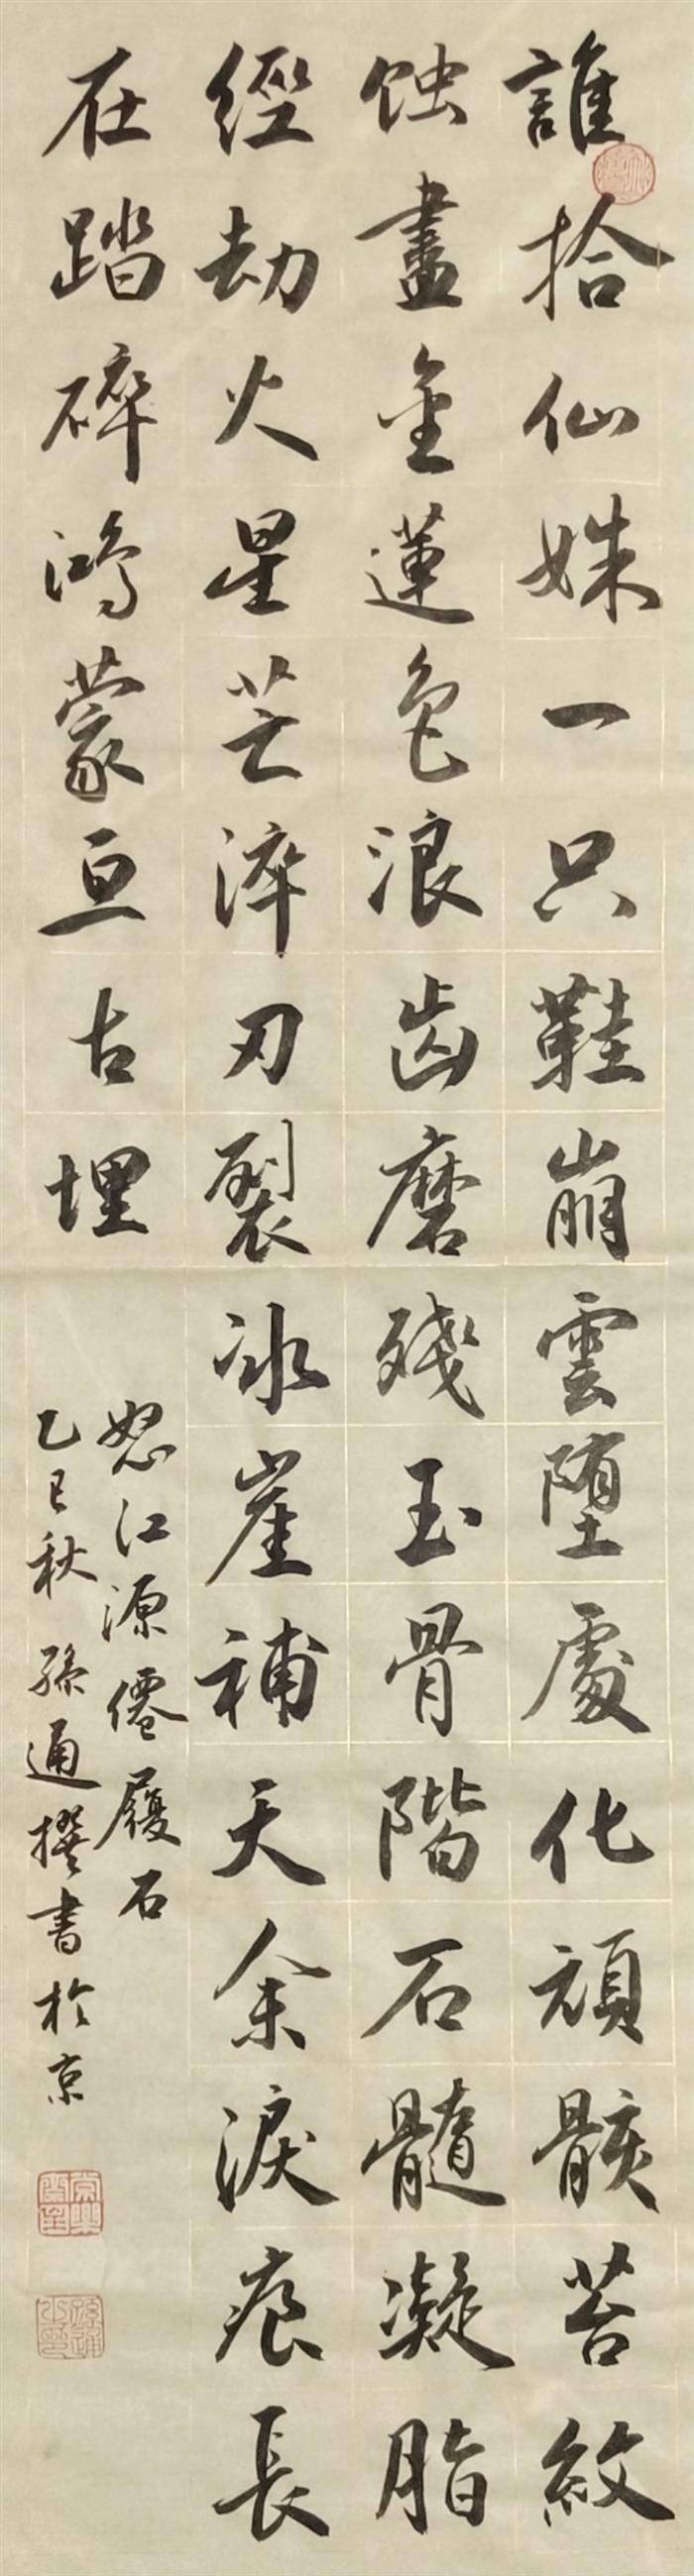 誰拾仙姝一只鞋崩雲墮處化頑骸苔紋
蚀盡金蓮色浪齒磨殘玉骨階石髓凝脂
經劫火星芒淬刃裂冰崖補天余淚痕長
在踏碎鴻蒙亘古埋
怒江源僊履石
乙巳秋孫通撰書於京